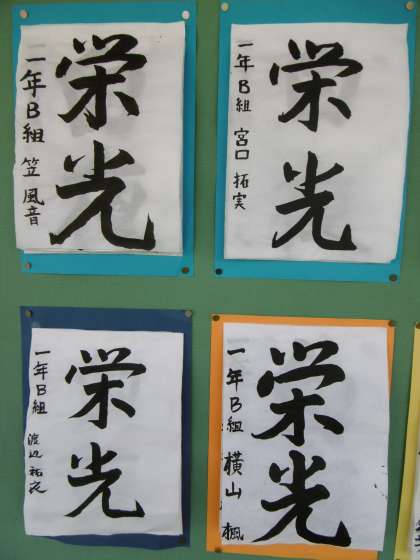 栄光
一年B組 笠 風音
栄光
一年B組 宮口 拓実
栄光
一年B組 渡辺 祐衣
栄光
一年B組 横山 楓